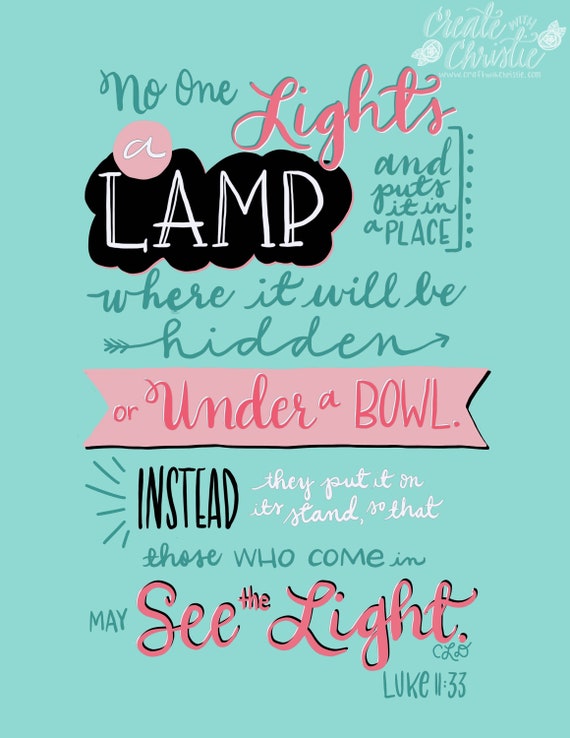 Create with
Christie
www.craftwithchristie.com
No One Lights
a
LAMP
and
puts
it in
a PLACE
where it will be
hidden
or Under a BOWL.
INSTEAD
they put it on
its stand, so that
those WHO COME in
MAY See the Light.
CLD
LUKE 11:33